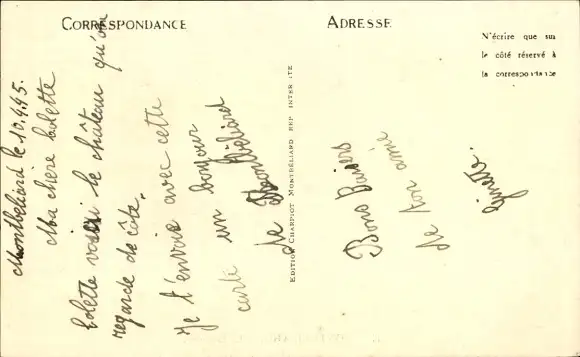 CORRESPONDANCE
ADRESSE
N'écrire que sur
le côté réservé à
la correspondance
Montbéliard le 10.4.45.
Ma chère Colette
Colette voici le château qu'on
regarde de côté.
Je t'envoie avec cette
carte un bonjour
de Montbéliard
EDITION CHARPIOT MONTBÉLIARD REP INTER ITE
Bons Baisers
de ton amie
Ginette.